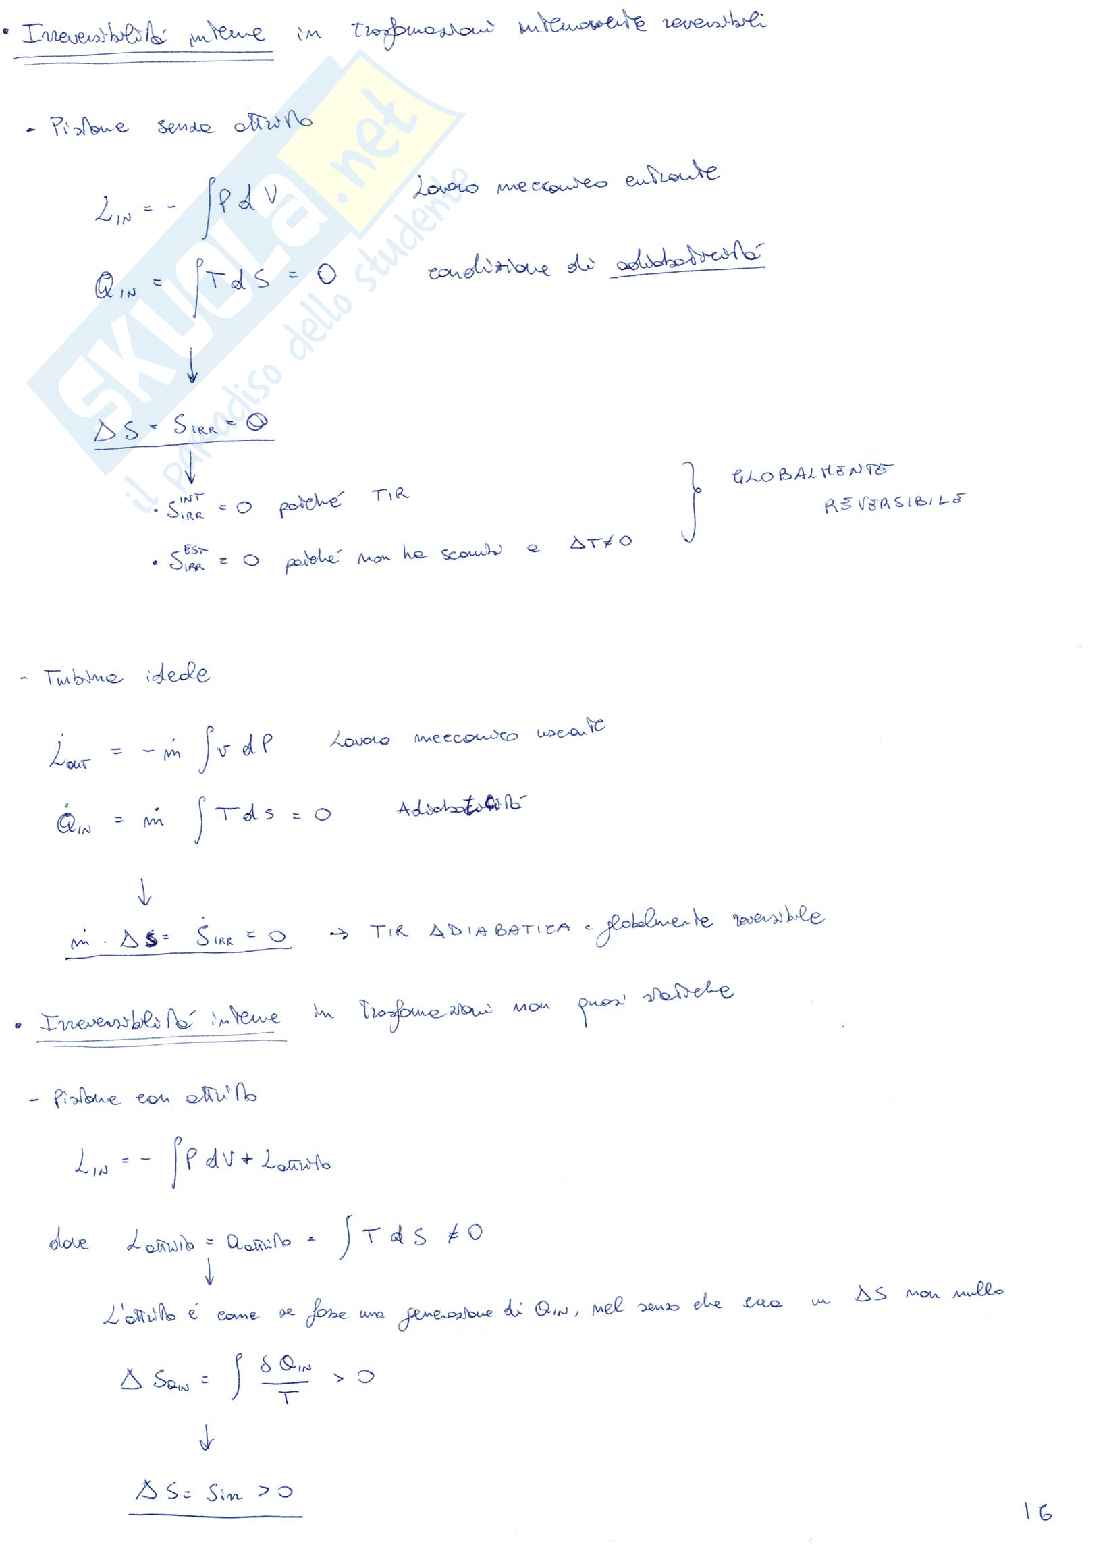 • Irreversibilità interne in trasformazioni internamente reversibili
- Pistone senza attrito
L_IN = - ∫ P d V   Lavoro meccanico entrante
Q_IN = ∫ T d S = 0   condizione di adiabaticità
↓
Δ S = S_IRR = 0
↓
• S_IRR^INT = 0 poiché TIR
• S_IRR^EST = 0 poiché non ha scambi a ΔT≠0
} GLOBALMENTE
REVERSIBILE
- Turbina ideale
L̇_OUT = - ṁ ∫ v dP   Lavoro meccanico uscente
Q̇_IN = ṁ ∫ T d s = 0   Adiabaticità
↓
ṁ · Δs = Ṡ_IRR = 0 → TIR ADIABATICA e globalmente reversibile
• Irreversibilità interne in trasformazioni non quasi statiche
- Pistone con attrito
L_IN = - ∫ P dV + L_attrito
dove L_attrito = Q_attrito = ∫ T d S ≠ 0
↓
L'attrito è come se fosse una generazione di Q_IN, nel senso che crea un ΔS non nullo
Δ S_QIN = ∫ δQ_IN / T > 0
↓
Δ S = Sirr > 0
16
SKUOLA.net
il paradiso dello studente